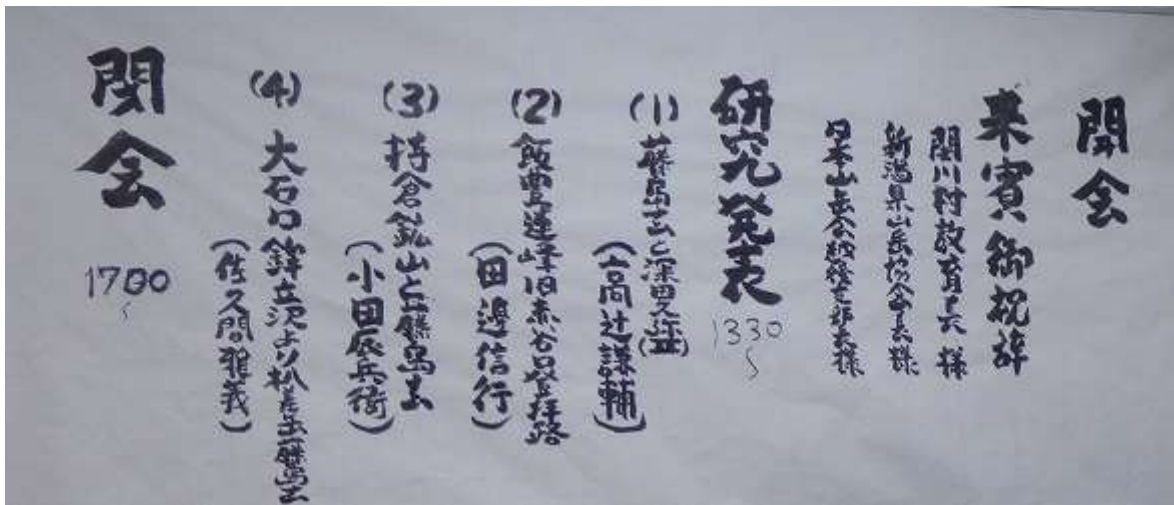 開会
来賓御祝辞
関川村教育長 様
新潟県山岳協会長様
日本山岳会越後支部長様
研究発表
1330～
(1) 藤島玄と深田久弥
(高辻謙輔)
(2) 飯豊連峰旧赤谷口登拝路
(田邊信行)
(3) 持倉鉱山と藤島玄
(小田辰兵衛)
(4) 大石口鉾立沢より杁差岳藤島玄
(佐久間雅義)
閉会
1700～